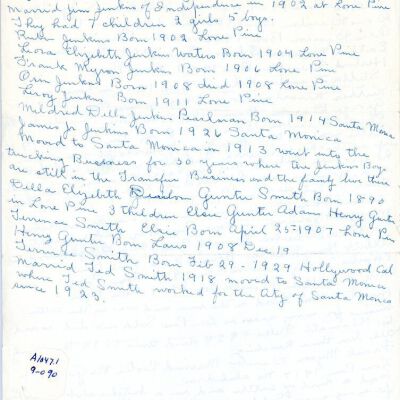 Married Jim Jenkins of Independence in 1902 at Lone Pine
They had 7 children 2 girls 5 boys.
Jenkins Born 1902 Lone Pine
Elizabeth Jenkins Waters Born 1904 Lone Pine
Frank Myron Jenkins Born 1906 Lone Pine
Orin Jenkins Born 1908 died 1908 Lone Pine
Leroy Jenkins Born 1911 Lone Pine
Mildred Della Jenkins Born 1914 Santa Monica
James Jr Jenkins Born 1926 Santa Monica
Moved to Santa Monica in 1913 went into the
trucking Business for 30 years where the Jenkins Boys
are still in the Transfer Business and the family live there
Della Elizabeth Gunter Smith Born 1890
in Lone Pine 3 children Elsie Gunter Adams Henry Gunter
Terrence Smith Elsie Born April 25-1907 Lone Pine
Henry Gunter Born Laws 1908 Dec 19
Terrence Smith Born Feb 29 - 1929 Hollywood Cal
Married Ted Smith 1918 moved to Santa Monica
where Ted Smith worked for the City of Santa Monica
since 1923.
9-090